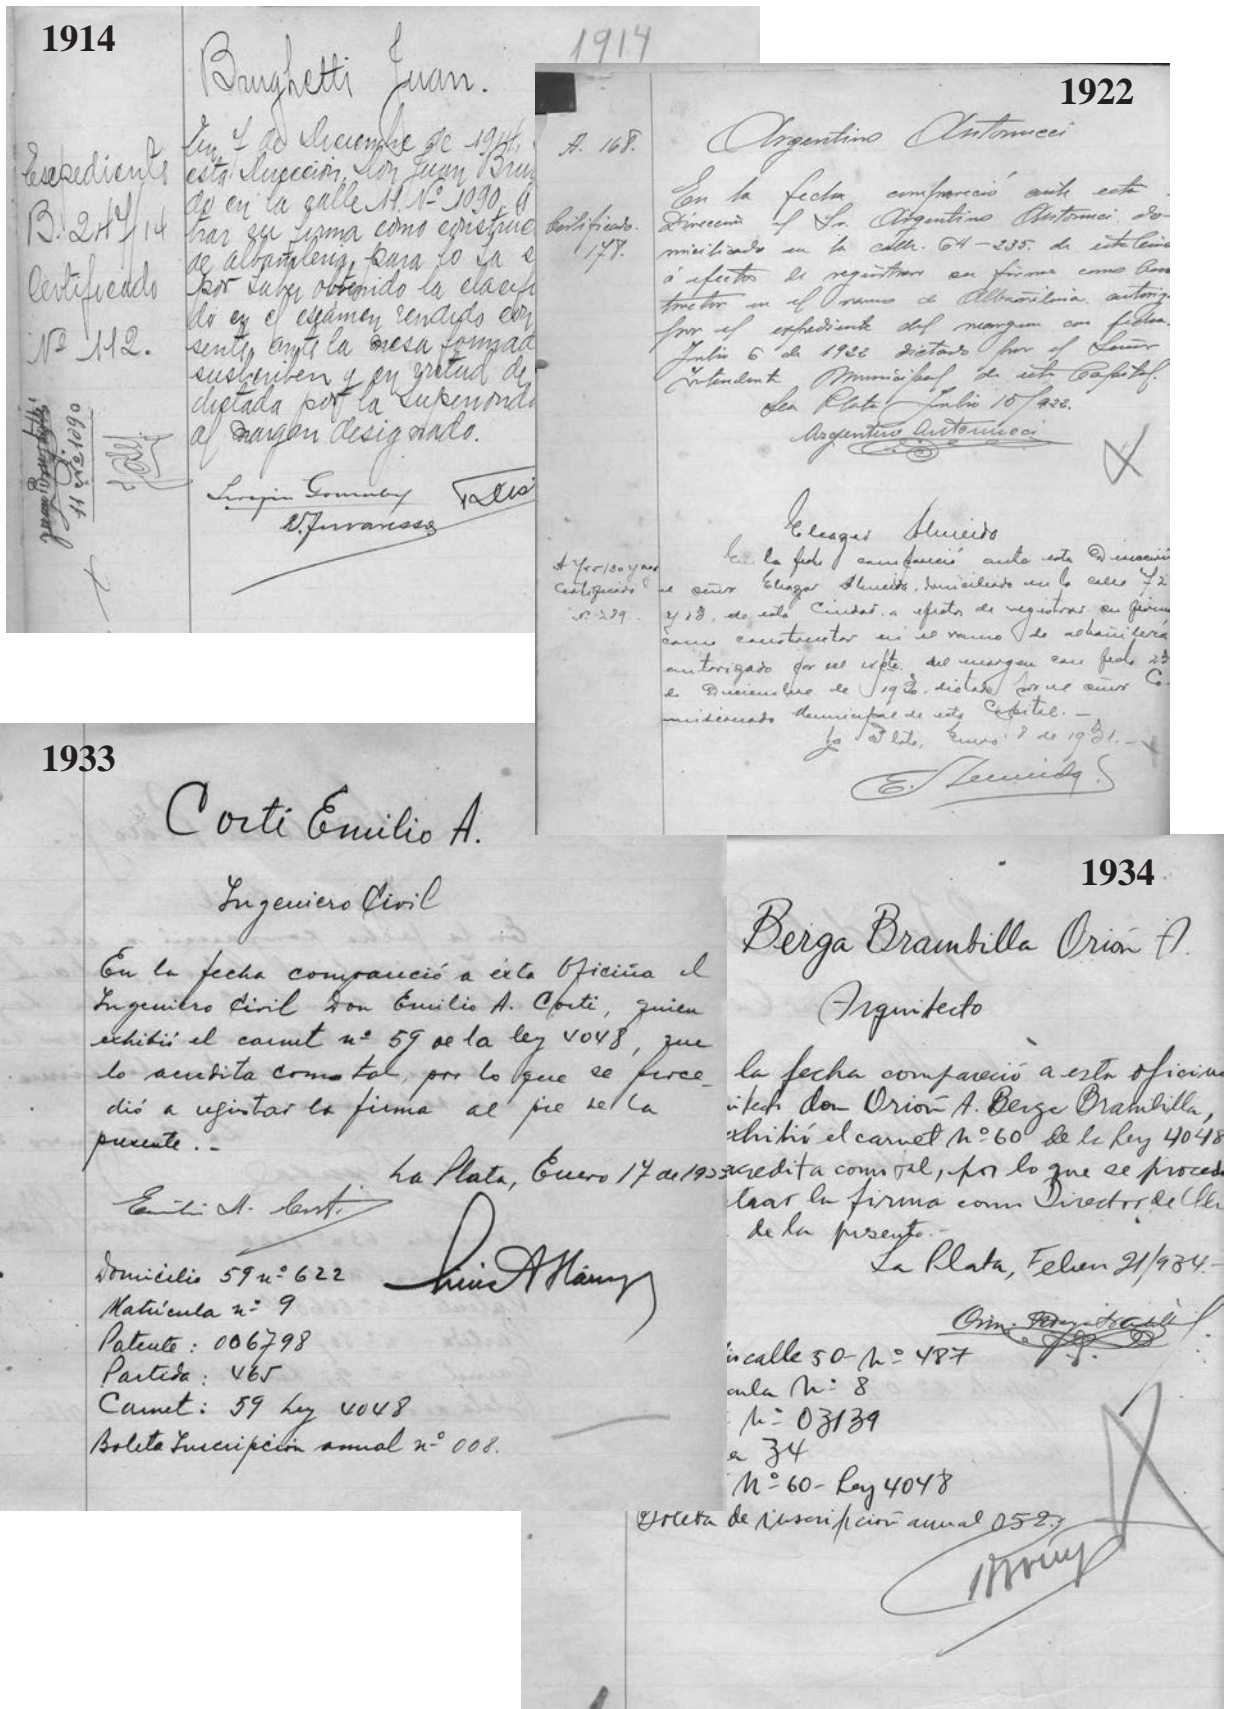 1914
1914
Brughetti Juan.
Expediente
B. 247/14
Certificado
Nº 112.
En 7 de Diciembre de 1914,
esta Dirección, Don Juan Bru
do en la calle 11. Nº 1090, á
trar su firma como construc
de albañileria, para lo
por haber obtenido la clasifi
do en el esamen rendido
sente, ante la mesa formad
suscriben y en virtud de
dictada por la Superiorid
al margen designado.
1922
A. 168.
Certificado.
178.
Argentino Antonucci
En la fecha compareció ante esta
Dirección el Sr. Argentino Antonucci do-
miciliado en la calle. 64-235. de esta
á efectos de registrar su firma como Cons
tructor en el ramo de Albañileria. autoriz
por el expediente del margen con fecha.
Julio 6 de 1922 dictado por el Señor
Intendente Municipal de esta Capital.
La Plata Julio 15/922.
Argentino Antonucci
Certificado
nº 289.
Eleazar Almeida
En la fecha compareció ante esta Dirección
el señor Eleazar Almeida, domiciliado en la calle 72
y 13, de esta Ciudad. a efectos de registrar su firma
como constructor en el ramo de albañilería
autorizado por el expte. del margen con fecha 23
de Diciembre de 1930. dictado por el señor Co-
misionado Municipal de esta Capital.—
La Plata, Enero 8 de 1931.—
1933
Corti Emilio A.
Ingeniero Civil
En la fecha compareció a esta Oficina el
Ingeniero Civil Don Emilio A. Corti, quien
exhibió el carnet nº 59 de la ley 4048, que
lo acredita como tal, por lo que se proce-
dió a registrar la firma al pie de la
presente.-
La Plata, Enero 17 de 1933
Emilio A. Corti
Domicilio 59 nº 622
Matrícula nº 9
Patente: 006798
Partida: 465
Carnet: 59 Ley 4048
Boleta Inscripción anual nº 008.
1934
Berga Brambilla Orión A.
Arquitecto
la fecha compareció a esta oficina
itecto don Orión A. Berga Brambilla,
exhibió el carnet Nº 60 de la Ley 4048
acredita como tal, por lo que se procede
trar la firma como Director de
de la presente.-
La Plata, 21/934.-
calle 50-Nº 487
cula Nº 8
Nº 03139
34
Nº 60- Ley 4048
Boleta de inscripción anual 052.